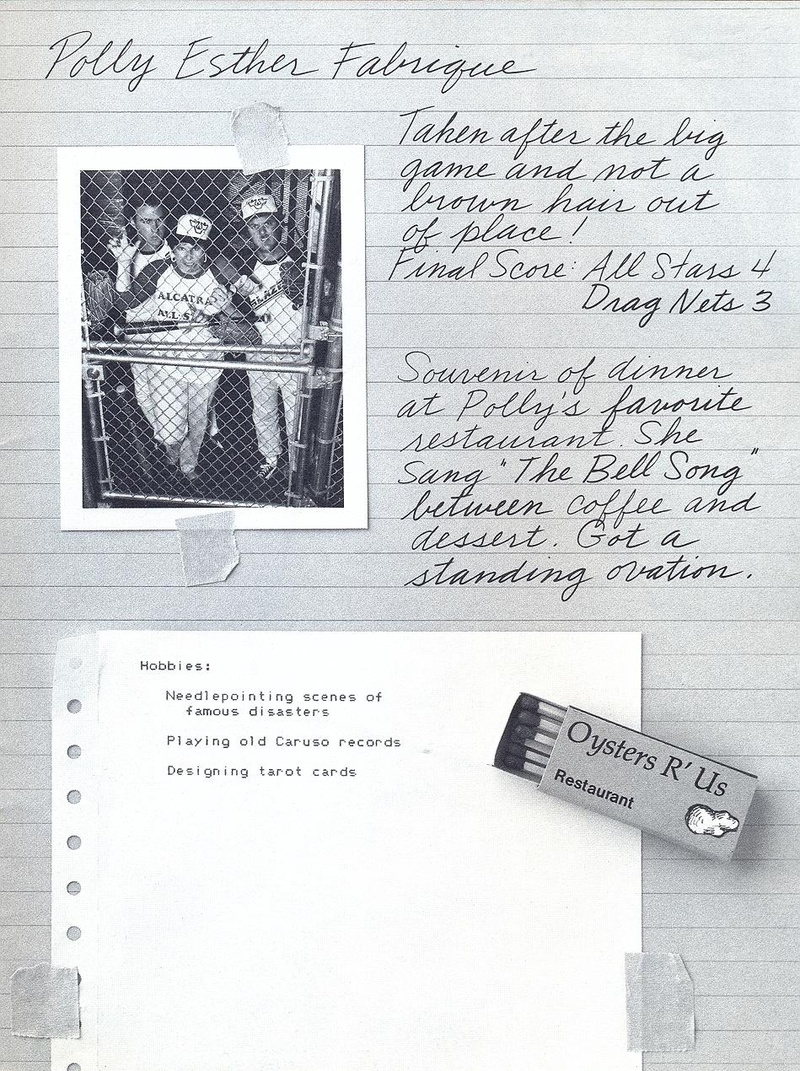 Polly Esther Fabrique
Taken after the big
game and not a
brown hair out
of place!
Final Score: All Stars 4
Drag Nets 3
ALCATRA
ALL-S
BLAZE
Souvenir of dinner
at Polly's favorite
restaurant. She
sang "The Bell Song"
between coffee and
dessert. Got a
standing ovation.
Hobbies:
Needlepointing scenes of
famous disasters
Playing old Caruso records
Designing tarot cards
Oysters R' Us
Restaurant